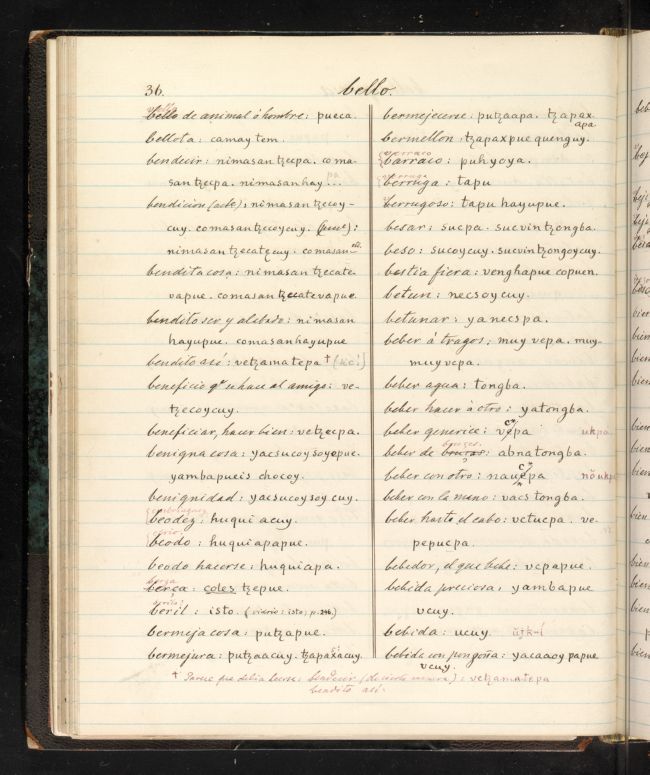 36.
bello.
vello
bello de animal ó hombre: pueca.
bellota: camaytem.
bendecir: nimasantzecpa. coma-
santzecpa. nimasanhay...
pa
bendicion (acte): nimasantzecoy-
cuy. comasantzecoycuy. (pue):
nimasantzecatecuy. comasan-
bendita cosa: nimasantzecate-
vapue. comasantzecatevapue.
bendito ser y alabado: nimasan
hayupue. comasanhayupue
bendito asi: vetzamatepa † (sic!)
beneficio qe se hace al amigo: ve-
tzecoycuy.
beneficiar, hacer bien: vetzecpa.
benigna cosa: yacsucoysoyepue.
yambapueis chocoy.
benignidad: yacsucoysoycuy.
beodez: huquiacuy.
beodo: huquiapapue.
beodo hacerse: huquiapa.
berça
berca: coles tzepue.
beril: isto. (vidrio: isto; p. 246.)
bermeja cosa: putzapue.
bermejura: putzaacuy. tzapaxacuy.
bermejecerse: putzaapa. tzapax
apa
bermellon: tzapaxpue quenguy.
verraco
barraco: puhyoya.
verruga
berruga: tapu
berrugoso: tapuhayupue.
besar: sucpa. sucvintzongba.
beso: sucoycuy. sucvintzongoycuy.
bestia fiera: venghapue copuen.
betun: necsoycuy.
betunar: yanecspa.
beber á tragos: muyvcpa. muy-
muyvcpa.
beber agua: tongba.
beber hacer á otro: yatongba.
beber generice: vepa ukpa
bruzes
beber de bruras: abnatongba.
beber con otro: nauepa nöukp
beber con la mano: vacstongba.
beber hasta el cabo: vctucpa. ve-
pepucpa.
bebedor, el que bebe: vcpapue.
bebida preciosa: yambapue
vcuy.
bebida: ucuy.
bebida con ponçoña: yacaaoy papue
vcuy.
† Parece que debia leerse: bendecir (de cierta manera): vetzamatepa
bendito asi: